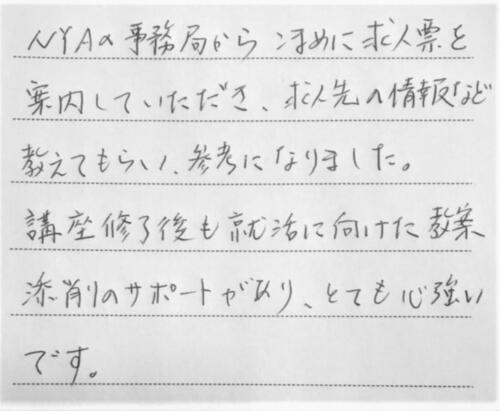 NYAの事務局からこまめに求人票を
案内していただき、求人先の情報など
教えてもらい、参考になりました。
講座修了後も就活に向けた教案
添削のサポートがあり、とても心強い
です。